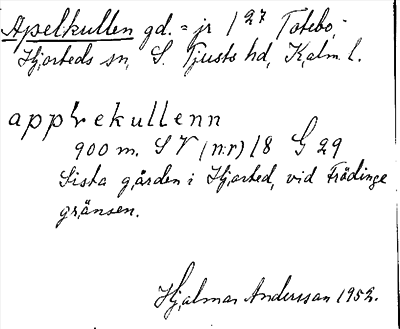 Apelkullen gd. = jr 1 27 Totebo,
Hjorteds sn, S. Tjusts hd, Kalm. l.
app`rekullenn
900 m. SV (n:r) 18 G 29
Sista gården i Hjorted, vid Frödinge
gränsen.
Hjalmar Andersson 1952.